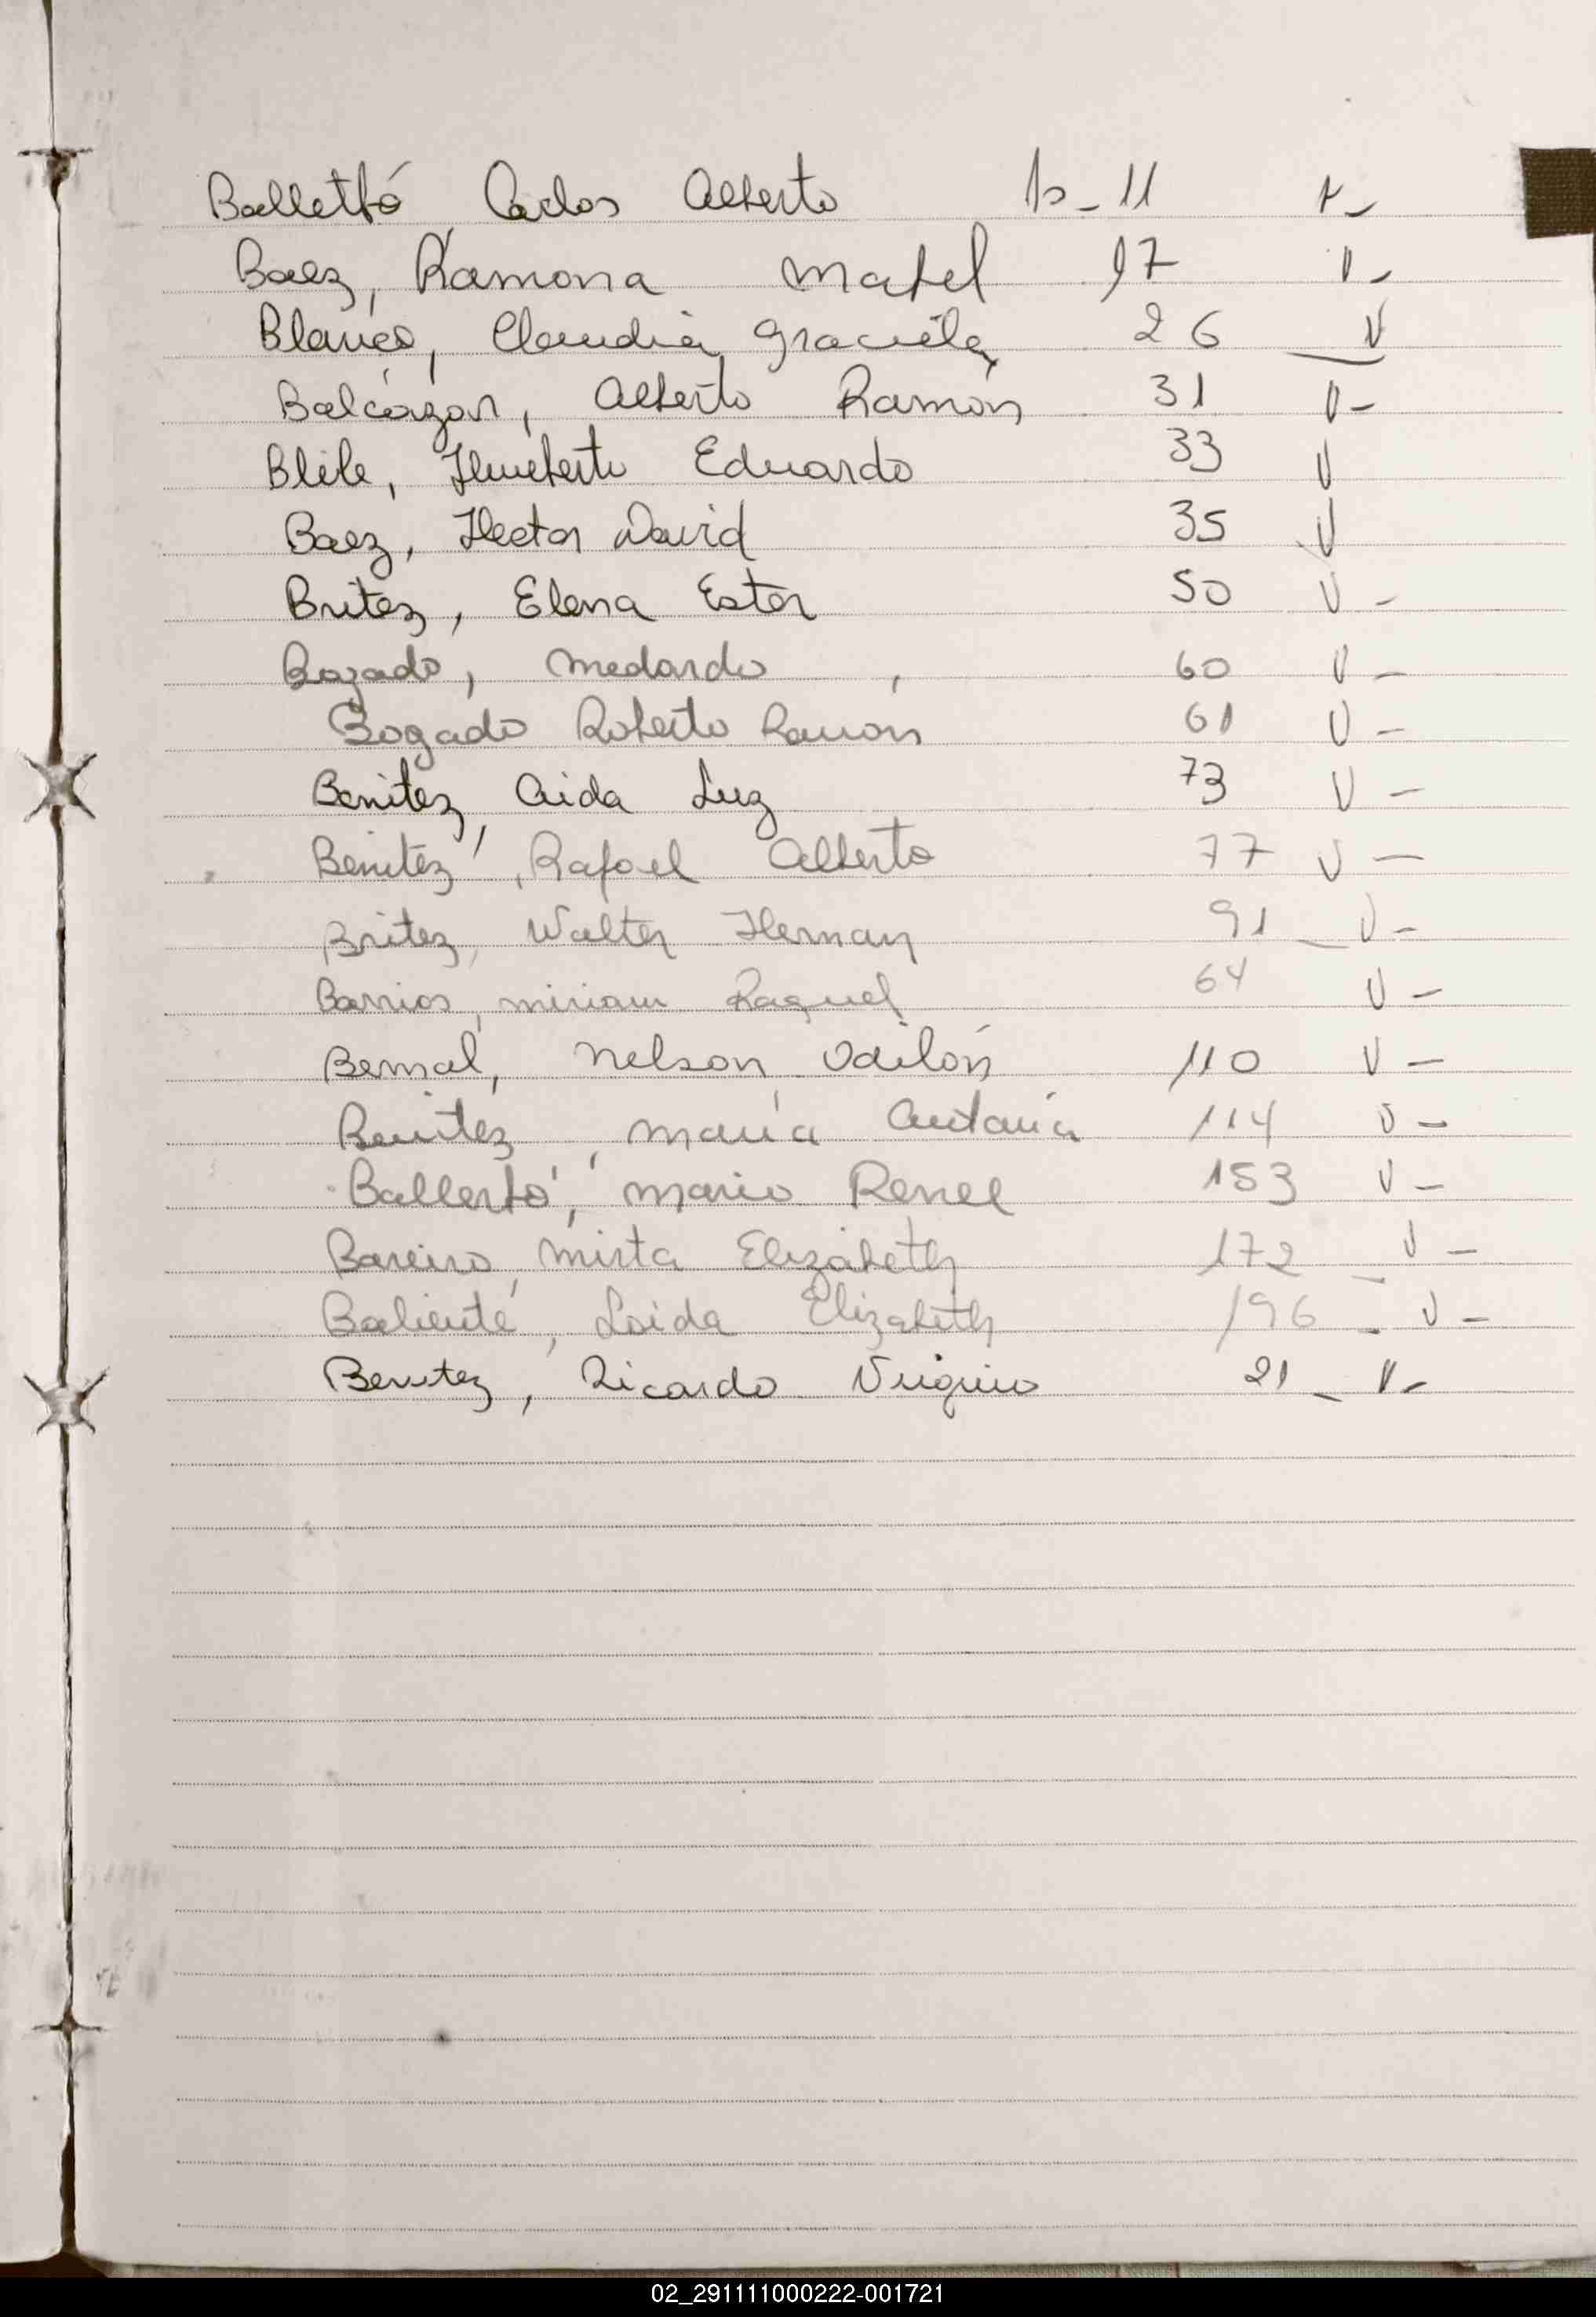 Ballettó Carlos Alberto 10 - 11 V -
Baez, Ramona Mabel 17 V -
Blanco, Claudia Graciela 26 V
Balcázar, Alberto Ramón 31 V -
Humberto Eduardo 33 V
Baez, Hector David 35 V
Britez, Elena Ester 50 V -
Bogado, Medardo, 60 V -
Bogado Roberto Ramón 61 V -
Benitez, Aida Luz 73 V -
Benitez, Rafael Alberto 77 V -
Britez, Walter Hernan 91 - V -
Barrios, Miriam Raquel 64 V -
Bernal, Nelson Odilón 110 V -
Benitez, María Antonia 114 V -
Mario Renee 153 V -
Bareiro, Mirta Elizabeth 172 - V -
Baliente, Loida Elizabeth 196 - V -
Benitez, Ricardo Virginio 21 - V -
02_291111000222-001721